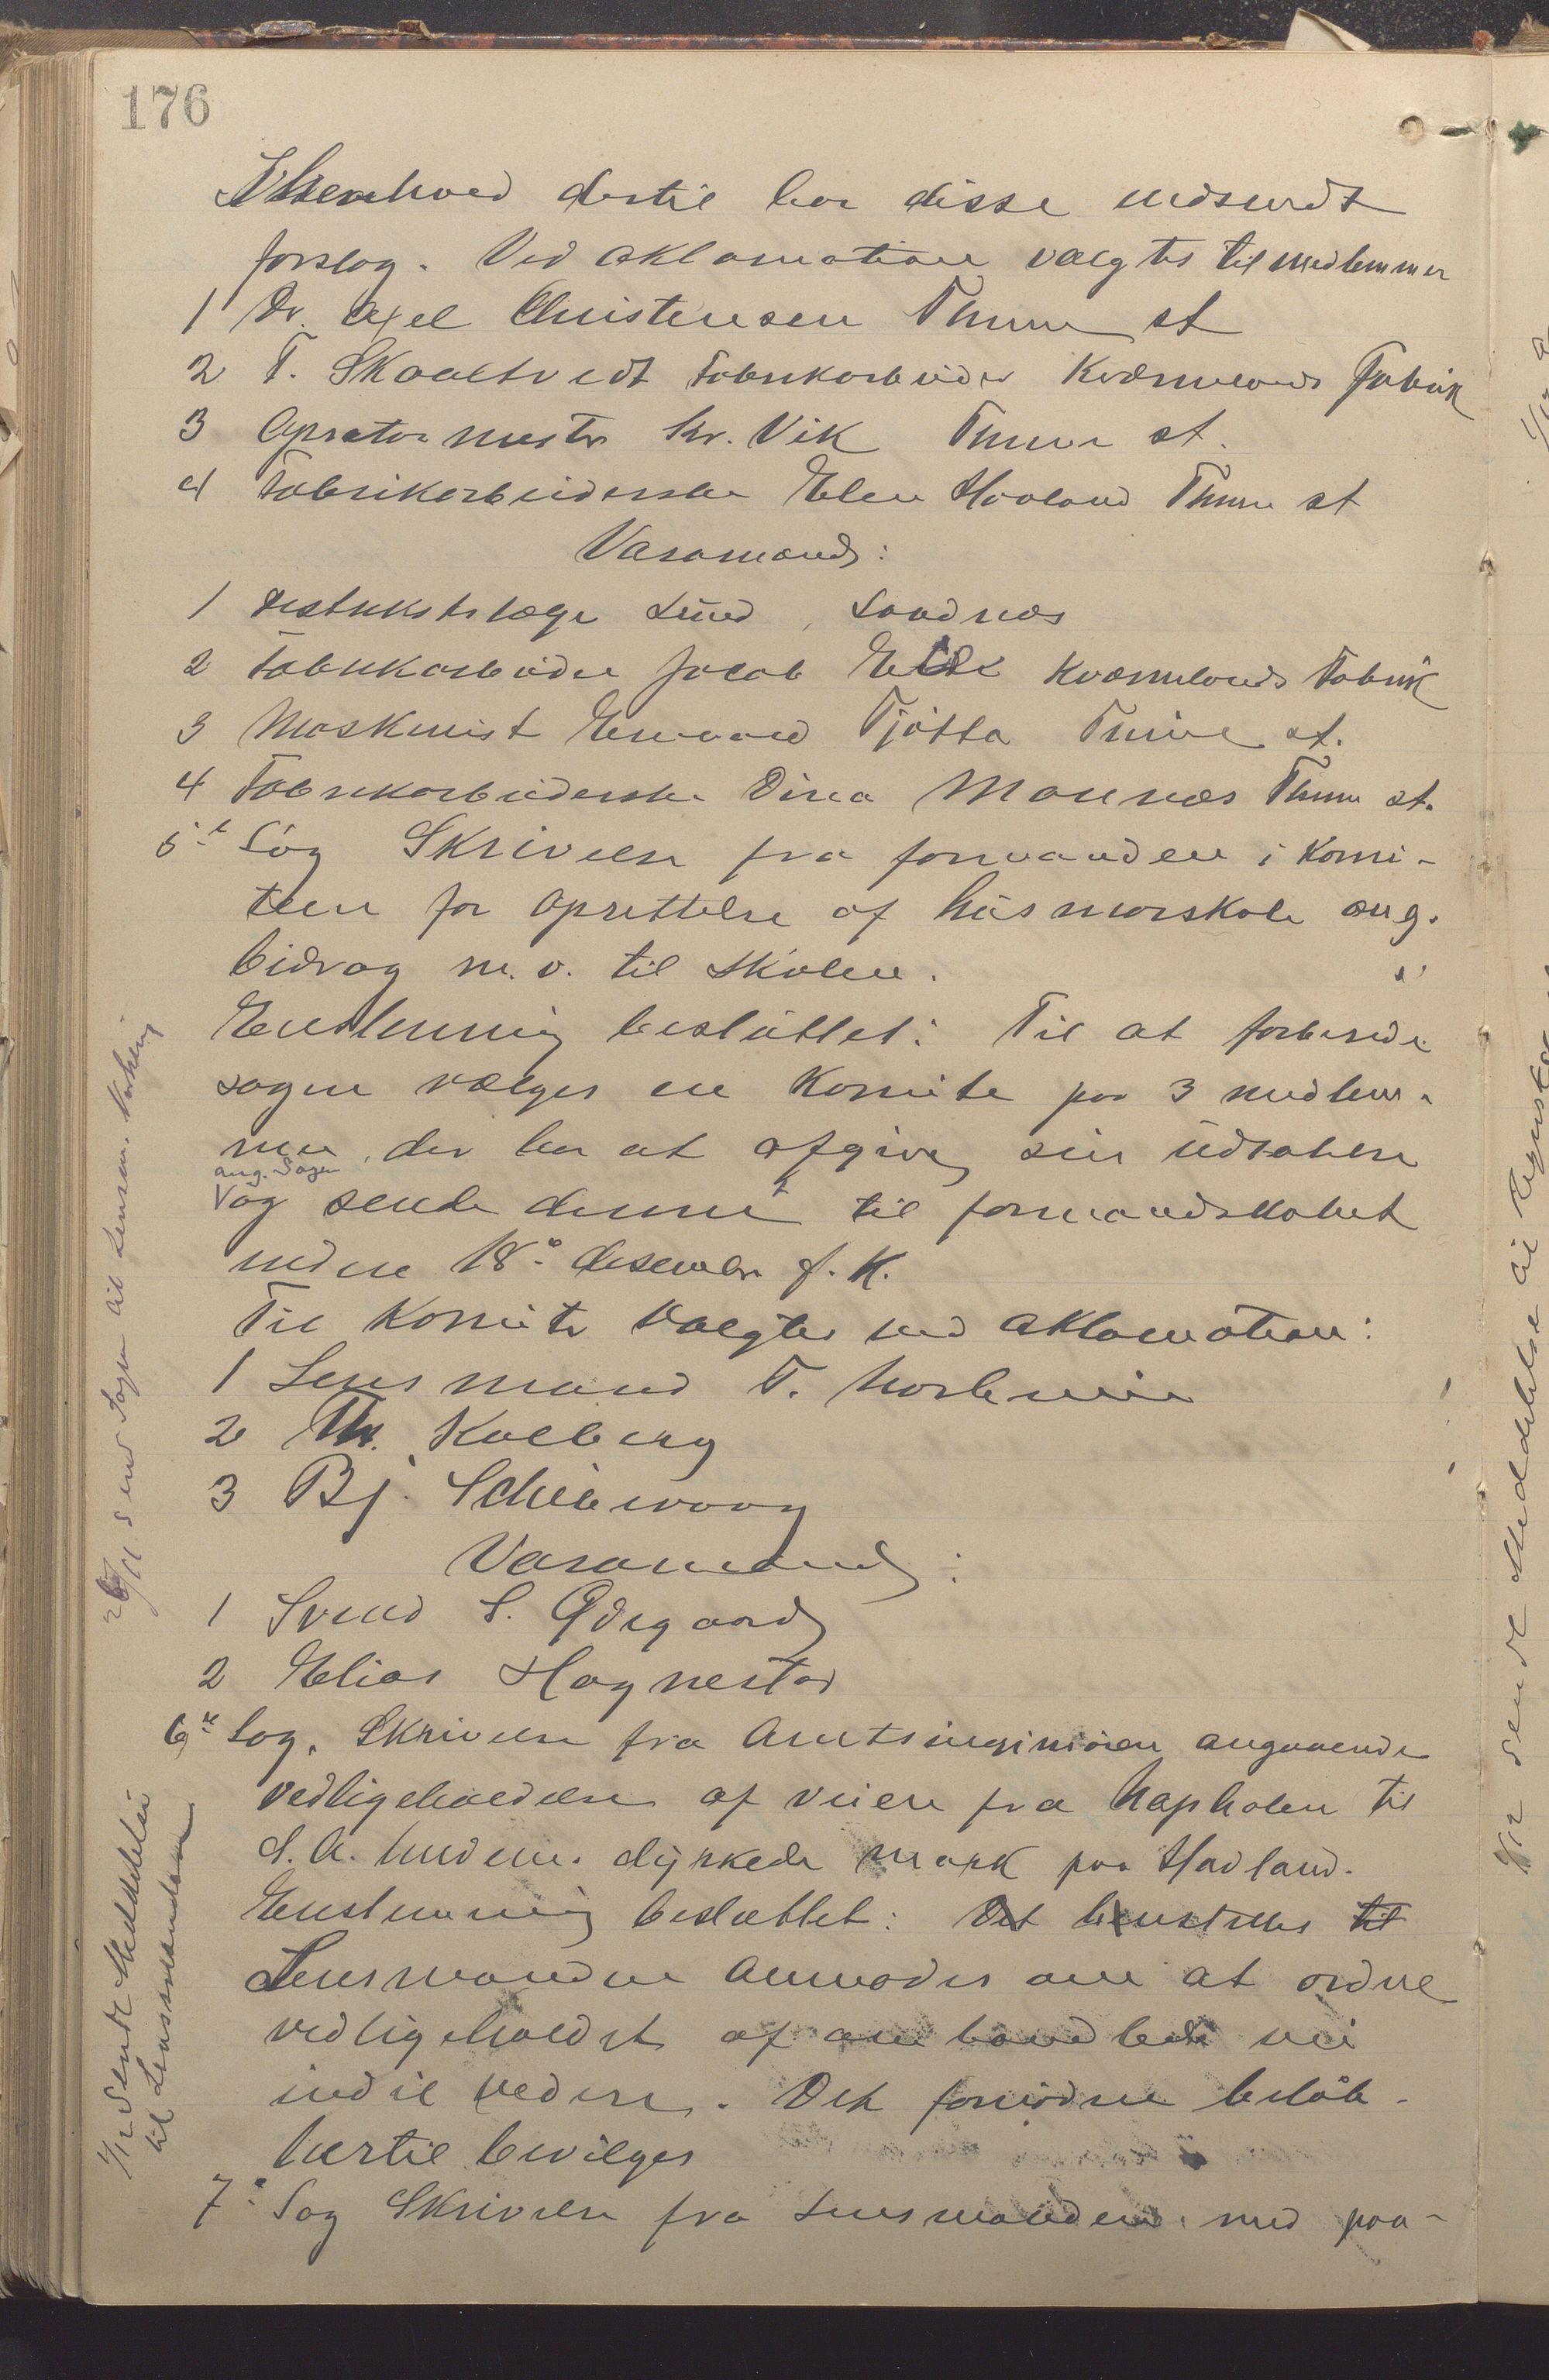 176
I henhold dertil har disse indsendt
forslag. Ved aklamation valgtes til medlemmer
1 Dr. Axel Christensen Thime st
2 T. Skaaltvedt Fabrikarbeider Kværnelands Fabrik
3 Opratørmester Kr. Vik Thime st.
4 Fabrikarbeiderske Elen Haaland Thime st
Varamænd:
1 Distriktslæge Lund, Sandnes
2 Fabrikarbeider Jacob Eide Kværnelands Fabrik
3 Maskinist Enevald Tjøtta Thime st.
4 Fabrikarbeiderske Dina Maunæs Thime st.
5te Sag Skrivelse fra formanden i komi-
teen for oprettelse af husmorskole ang.
bidrag m.v. til skolen.
Enstemmig besluttet: Til at forberede
sagen vælges en komite paa 3 medlem-
mer, der har at afgive sin udtalelse
ang. Sagen
og sende denne til formandskabet
inden 18de desember f. k.
Til komite valgtes ved aklamation:
1 Lensmand T. Norheim
2 Th. Kolberg
3 Bj. Schiewaag
Varamænd:
1 Svend S. Ødegaard
2 Elias Hognestad
6te Sag. Skrivelse fra Amtsingeniøren angaaende
vedligeholdelse af veien fra Napholen til
S. A. Undem. dyrkede mark paa Havland.
Enstemmig besluttet: Det henstilles til
Lensmanden anmodes om at ordne
vedligeholdet af omhandlede vei
indtil videre. Det fornødne beløb
hertil bevilges
7de Sag Skrivelse fra Lensmanden med paa-
26/11 Send Sagen til Lensm. Norheim
1/12 Sendt Meddelelse
til Lensmanden
1/12 sendt Meddelelse til